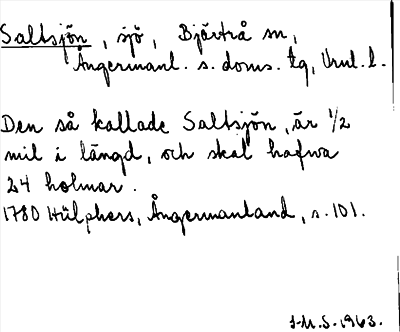 Saltsjön, sjö, Bjärtrå sn,
Ångermanl. s. doms. tg, Vnrl. l.
Den så kallade Saltsjön, är 1/2
mil i längd, och skal hafwa
24 holmar.
1780 Hülphers, Ångermanland, s. 101.
J-M.S. 1963.